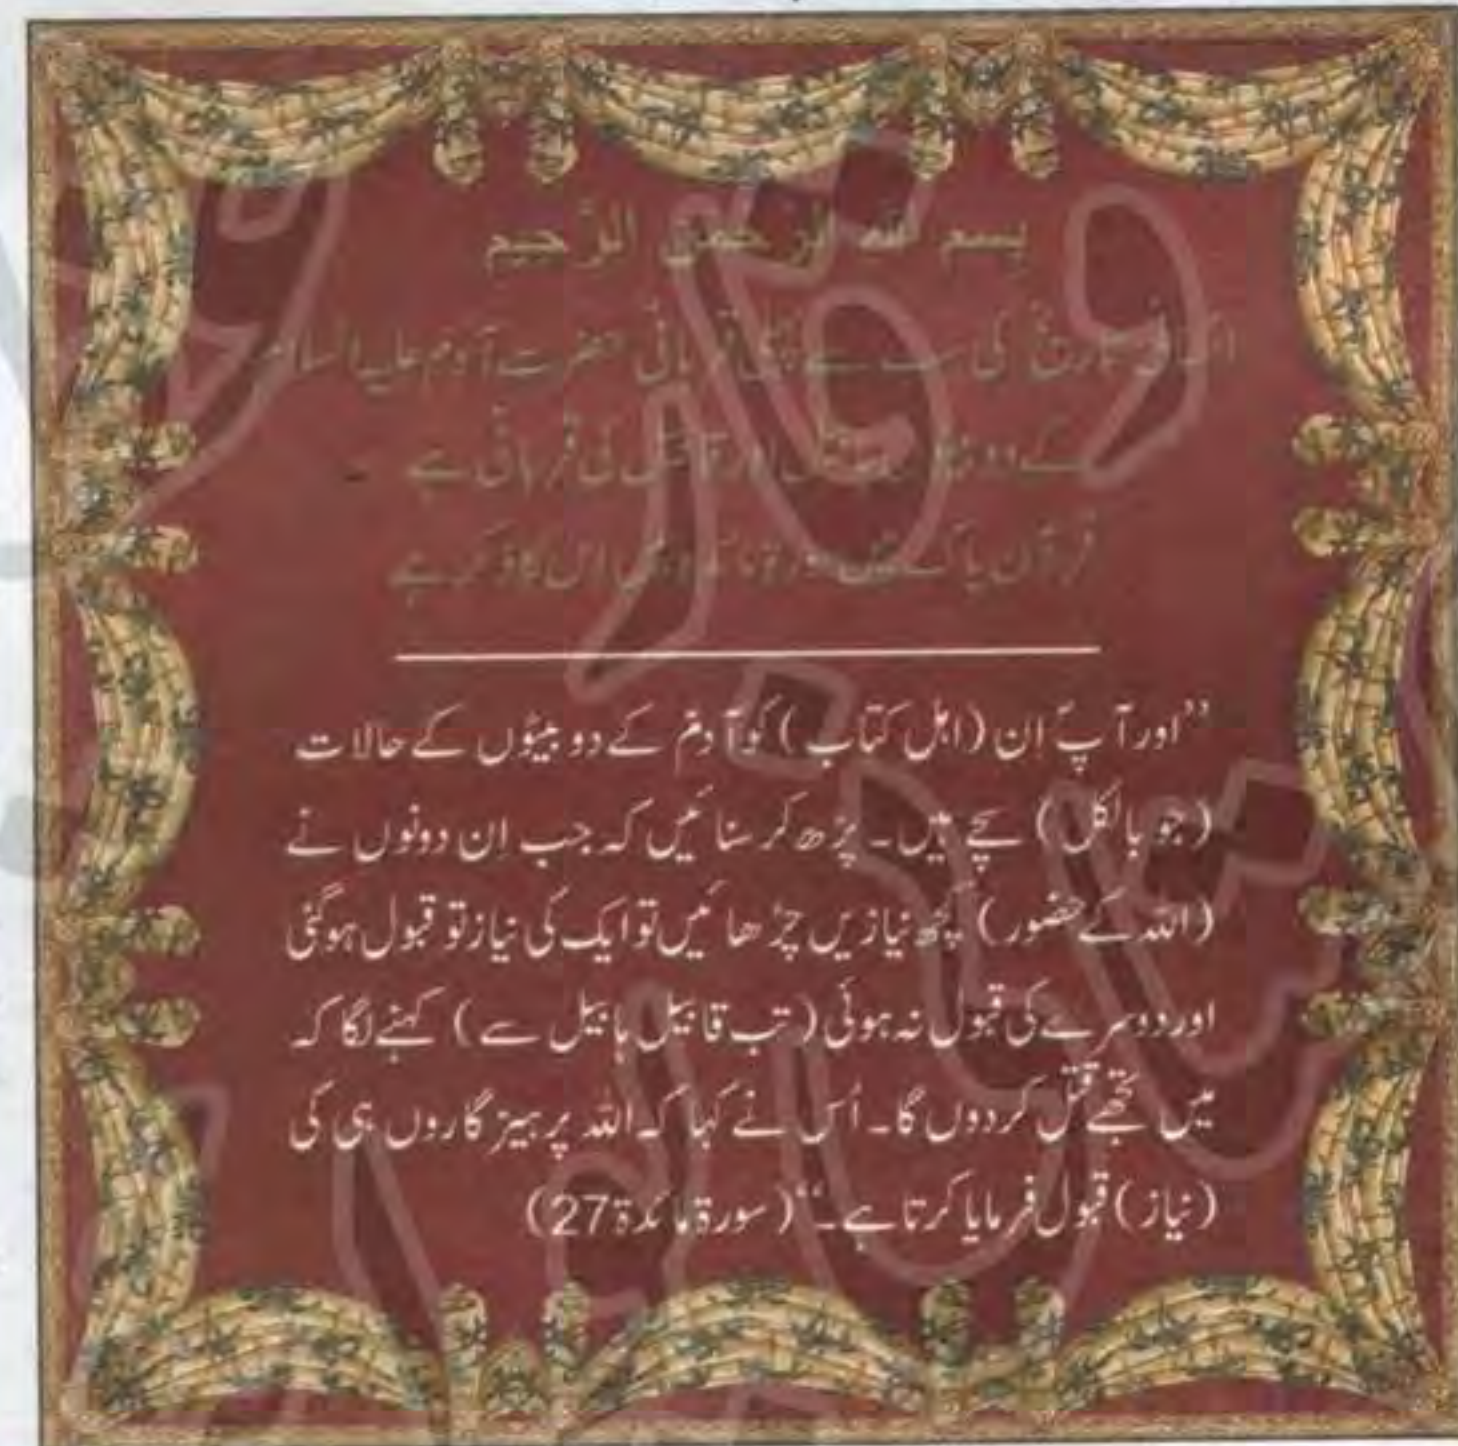 بسم اللہ الرّحمٰن الرّحیم
انسانی تاریخ کی سب سے پہلی قربانی حضرت آدم علیہ السلام
کے دو بیٹوں ہابیل اور قابیل کی قربانی ہے
قرآن پاک میں اس کا ذکر ہے
”اور آپؐ اِن (اہل کتاب) کو آدمؑ کے دو بیٹوں کے حالات
(جو بالکل) سچے ہیں۔ پڑھ کر سنائیں کہ جب اِن دونوں نے
(اللہ کے حضور) کچھ نیازیں چڑھائیں تو ایک کی نیاز تو قبول ہوگئی
اور دوسرے کی قبول نہ ہوئی (تب قابیل ہابیل سے) کہنے لگا کہ
میں تجھے قتل کردوں گا۔ اُس نے کہا کہ اللہ پرہیز گاروں ہی کی
(نیاز) قبول فرمایا کرتا ہے۔“ (سورۃ مائدۃ 27)
وقار